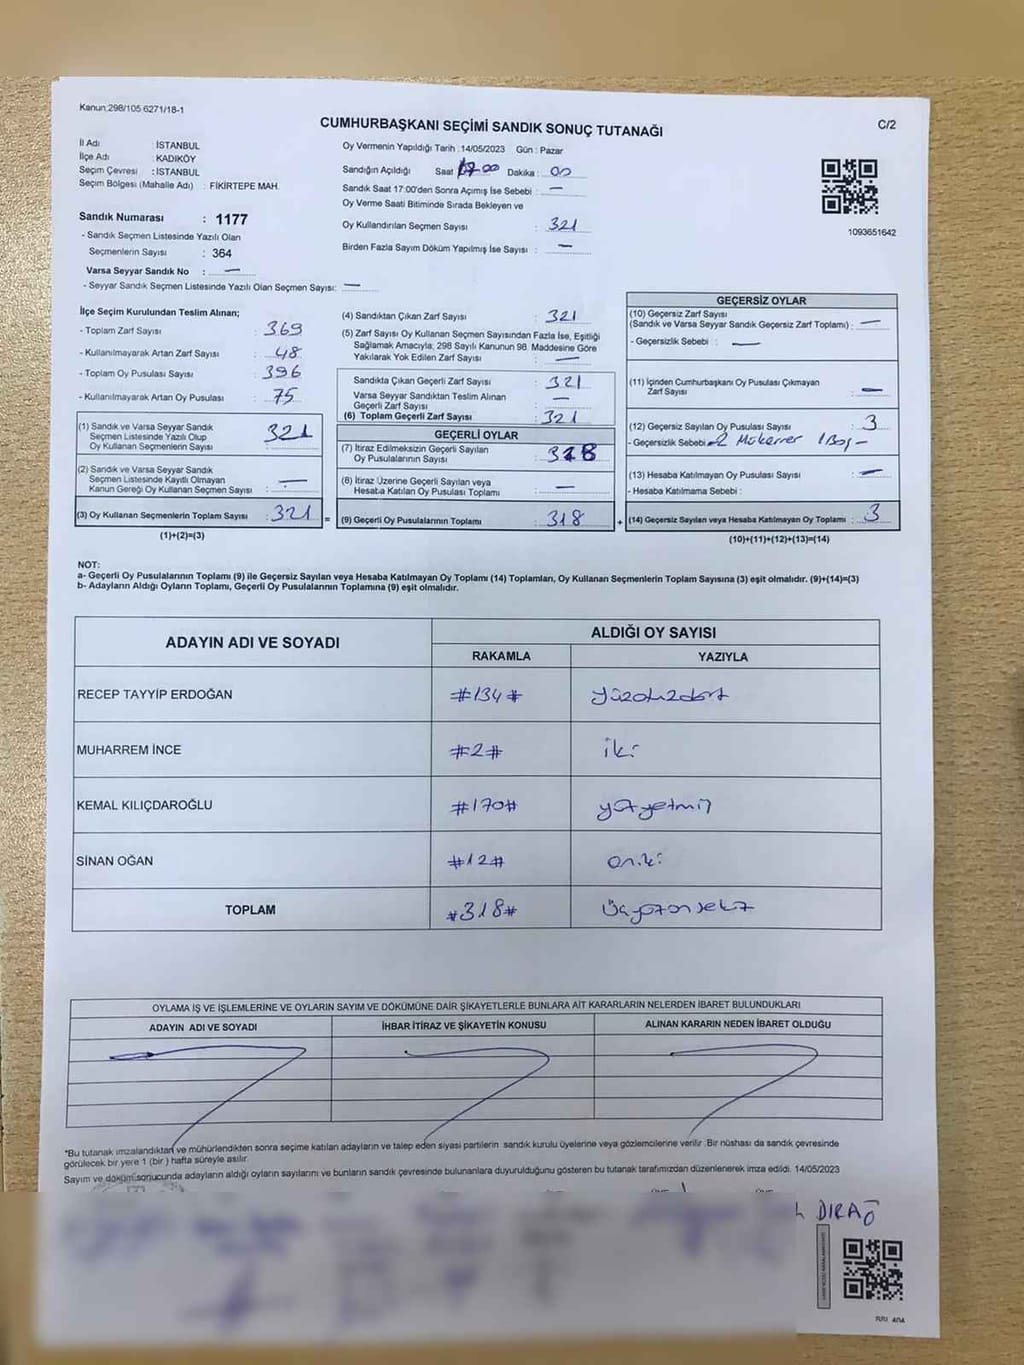 Kanun:298/105 6271/18-1
C/2
CUMHURBAŞKANI SEÇİMİ SANDIK SONUÇ TUTANAĞI
İl Adı : İSTANBUL
İlçe Adı : KADIKÖY
Seçim Çevresi : İSTANBUL
Seçim Bölgesi (Mahalle Adı) : FİKİRTEPE MAH.
Sandık Numarası : 1177
- Sandık Seçmen Listesinde Yazılı Olan
Seçmenlerin Sayısı : 364
Varsa Seyyar Sandık No : —
- Seyyar Sandık Seçmen Listesinde Yazılı Olan Seçmen Sayısı: —
Oy Vermenin Yapıldığı Tarih :14/05/2023 Gün : Pazar
Sandığın Açıldığı Saat 17:00 Dakika : 00
Sandık Saat 17:00'den Sonra Açımış İse Sebebi : —
Oy Verme Saati Bitiminde Sırada Bekleyen ve
Oy Kullandırılan Seçmen Sayısı : 321
Birden Fazla Sayım Döküm Yapılmış İse Sayısı : —
1093651642
İlçe Seçim Kurulundan Teslim Alınan;
- Toplam Zarf Sayısı : 369
- Kullanılmayarak Artan Zarf Sayısı : 48
- Toplam Oy Pusulası Sayısı : 396
- Kullanılmayarak Artan Oy Pusulası : 75
(1) Sandık ve Varsa Seyyar Sandık
Seçmen Listesinde Yazılı Olup
Oy Kullanan Seçmenlerin Sayısı : 321
(2) Sandık ve Varsa Seyyar Sandık
Seçmen Listesinde Kayıtlı Olmayan
Kanun Gereği Oy Kullanan Seçmen Sayısı : —
(3) Oy Kullanan Seçmenlerin Toplam Sayısı : 321
(1)+(2)=(3)
(4) Sandıktan Çıkan Zarf Sayısı : 321
(5) Zarf Sayısı Oy Kullanan Seçmen Sayısından Fazla İse, Eşitliği
Sağlamak Amacıyla; 298 Sayılı Kanunun 98. Maddesine Göre
Yakılarak Yok Edilen Zarf Sayısı : —
Sandıkta Çıkan Geçerli Zarf Sayısı : 321
Varsa Seyyar Sandıktan Teslim Alınan
Geçerli Zarf Sayısı : —
(6) Toplam Geçerli Zarf Sayısı : 321
GEÇERLİ OYLAR
(7) İtiraz Edilmeksizin Geçerli Sayılan
Oy Pusulalarının Sayısı : 318
(8) İtiraz Üzerine Geçerli Sayılan veya
Hesaba Katılan Oy Pusulası Toplamı : —
= (9) Geçerli Oy Pusulalarının Toplamı : 318 +
GEÇERSİZ OYLAR
(10) Geçersiz Zarf Sayısı
(Sandık ve Varsa Seyyar Sandık Geçersiz Zarf Toplamı) : —
- Geçersizlik Sebebi : —
(11) İçinden Cumhurbaşkanı Oy Pusulası Çıkmayan
Zarf Sayısı : —
(12) Geçersiz Sayılan Oy Pusulası Sayısı : 3
- Geçersizlik Sebebi : 2 Mükerrer 1 Boş -
(13) Hesaba Katılmayan Oy Pusulası Sayısı : —
- Hesaba Katılmama Sebebi :
(14) Geçersiz Sayılan veya Hesaba Katılmayan Oy Toplamı : 3
(10)+(11)+(12)+(13)=(14)
NOT:
a- Geçerli Oy Pusulalarının Toplamı (9) ile Geçersiz Sayılan veya Hesaba Katılmayan Oy Toplamı (14) Toplamları, Oy Kullanan Seçmenlerin Toplam Sayısına (3) eşit olmalıdır. (9)+(14)=(3)
b- Adayların Aldığı Oyların Toplamı, Geçerli Oy Pusulalarının Toplamına (9) eşit olmalıdır.
ADAYIN ADI VE SOYADI ALDIĞI OY SAYISI
RAKAMLA YAZIYLA
RECEP TAYYİP ERDOĞAN #134# yüzotuzdört
MUHARREM İNCE #2# iki
KEMAL KILIÇDAROĞLU #170# yüzyetmiş
SİNAN OĞAN #12# oniki
TOPLAM #318# Üçyüzonsekiz
OYLAMA İŞ VE İŞLEMLERİNE VE OYLARIN SAYIM VE DÖKÜMÜNE DAİR ŞİKAYETLERLE BUNLARA AİT KARARLARIN NELERDEN İBARET BULUNDUKLARI
ADAYIN ADI VE SOYADI İHBAR İTİRAZ VE ŞİKAYETİN KONUSU ALINAN KARARIN NEDEN İBARET OLDUĞU
*Bu tutanak imzalandıktan ve mühürlendikten sonra seçime katılan adayların ve talep eden siyasi partilerin sandık kurulu üyelerine veya gözlemcilerine verilir. Bir nüshası da sandık çevresinde
görülecek bir yere 1 (bir) hafta süreyle asılır.
Sayım ve döküm sonucunda adayların aldığı oyların sayılarını ve bunların sandık çevresinde bulunanlara duyurulduğunu gösteren bu tutanak tarafımızdan düzenlenerek imza edildi. 14/05/2023